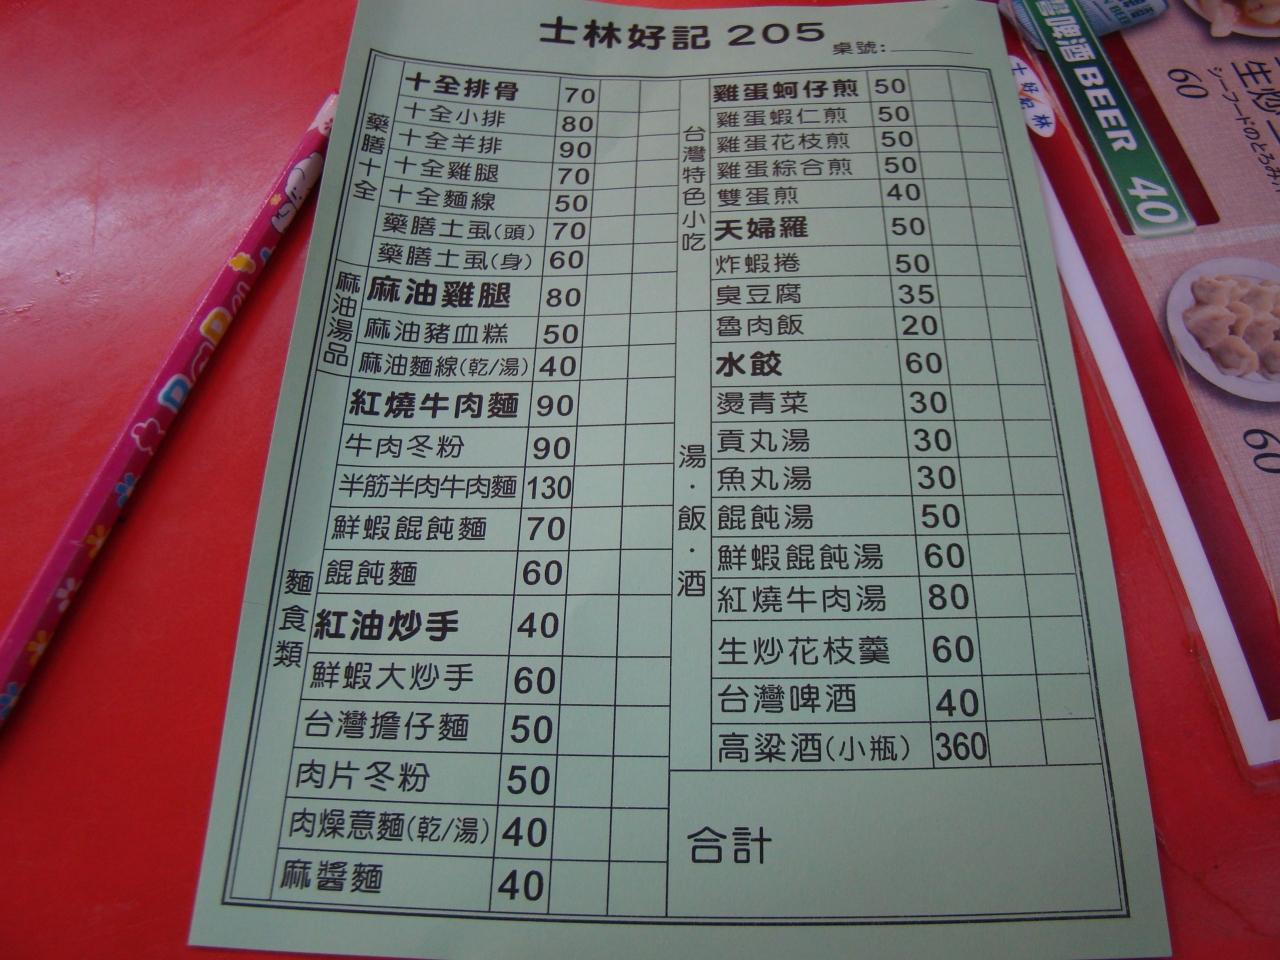 士林好記 205
桌號:
藥膳十全
十全排骨 70
十全小排 80
十全羊排 90
十全雞腿 70
十全麵線 50
藥膳土虱(頭) 70
藥膳土虱(身) 60
麻油湯品
麻油雞腿 80
麻油豬血糕 50
麻油麵線(乾/湯) 40
麵食類
紅燒牛肉麵 90
牛肉冬粉 90
半筋半肉牛肉麵 130
鮮蝦餛飩麵 70
餛飩麵 60
紅油炒手 40
鮮蝦大炒手 60
台灣擔仔麵 50
肉片冬粉 50
肉燥意麵(乾/湯) 40
麻醬麵 40
台灣特色小吃
雞蛋蚵仔煎 50
雞蛋蝦仁煎 50
雞蛋花枝煎 50
雞蛋綜合煎 50
雙蛋煎 40
天婦羅 50
炸蝦捲 50
臭豆腐 35
湯．飯．酒
魯肉飯 20
水餃 60
燙青菜 30
貢丸湯 30
魚丸湯 30
餛飩湯 50
鮮蝦餛飩湯 60
紅燒牛肉湯 80
生炒花枝羹 60
台灣啤酒 40
高粱酒(小瓶) 360
合計
啤酒 BEER 40
士林好記
生炒
シーフードのとろみ
60
60